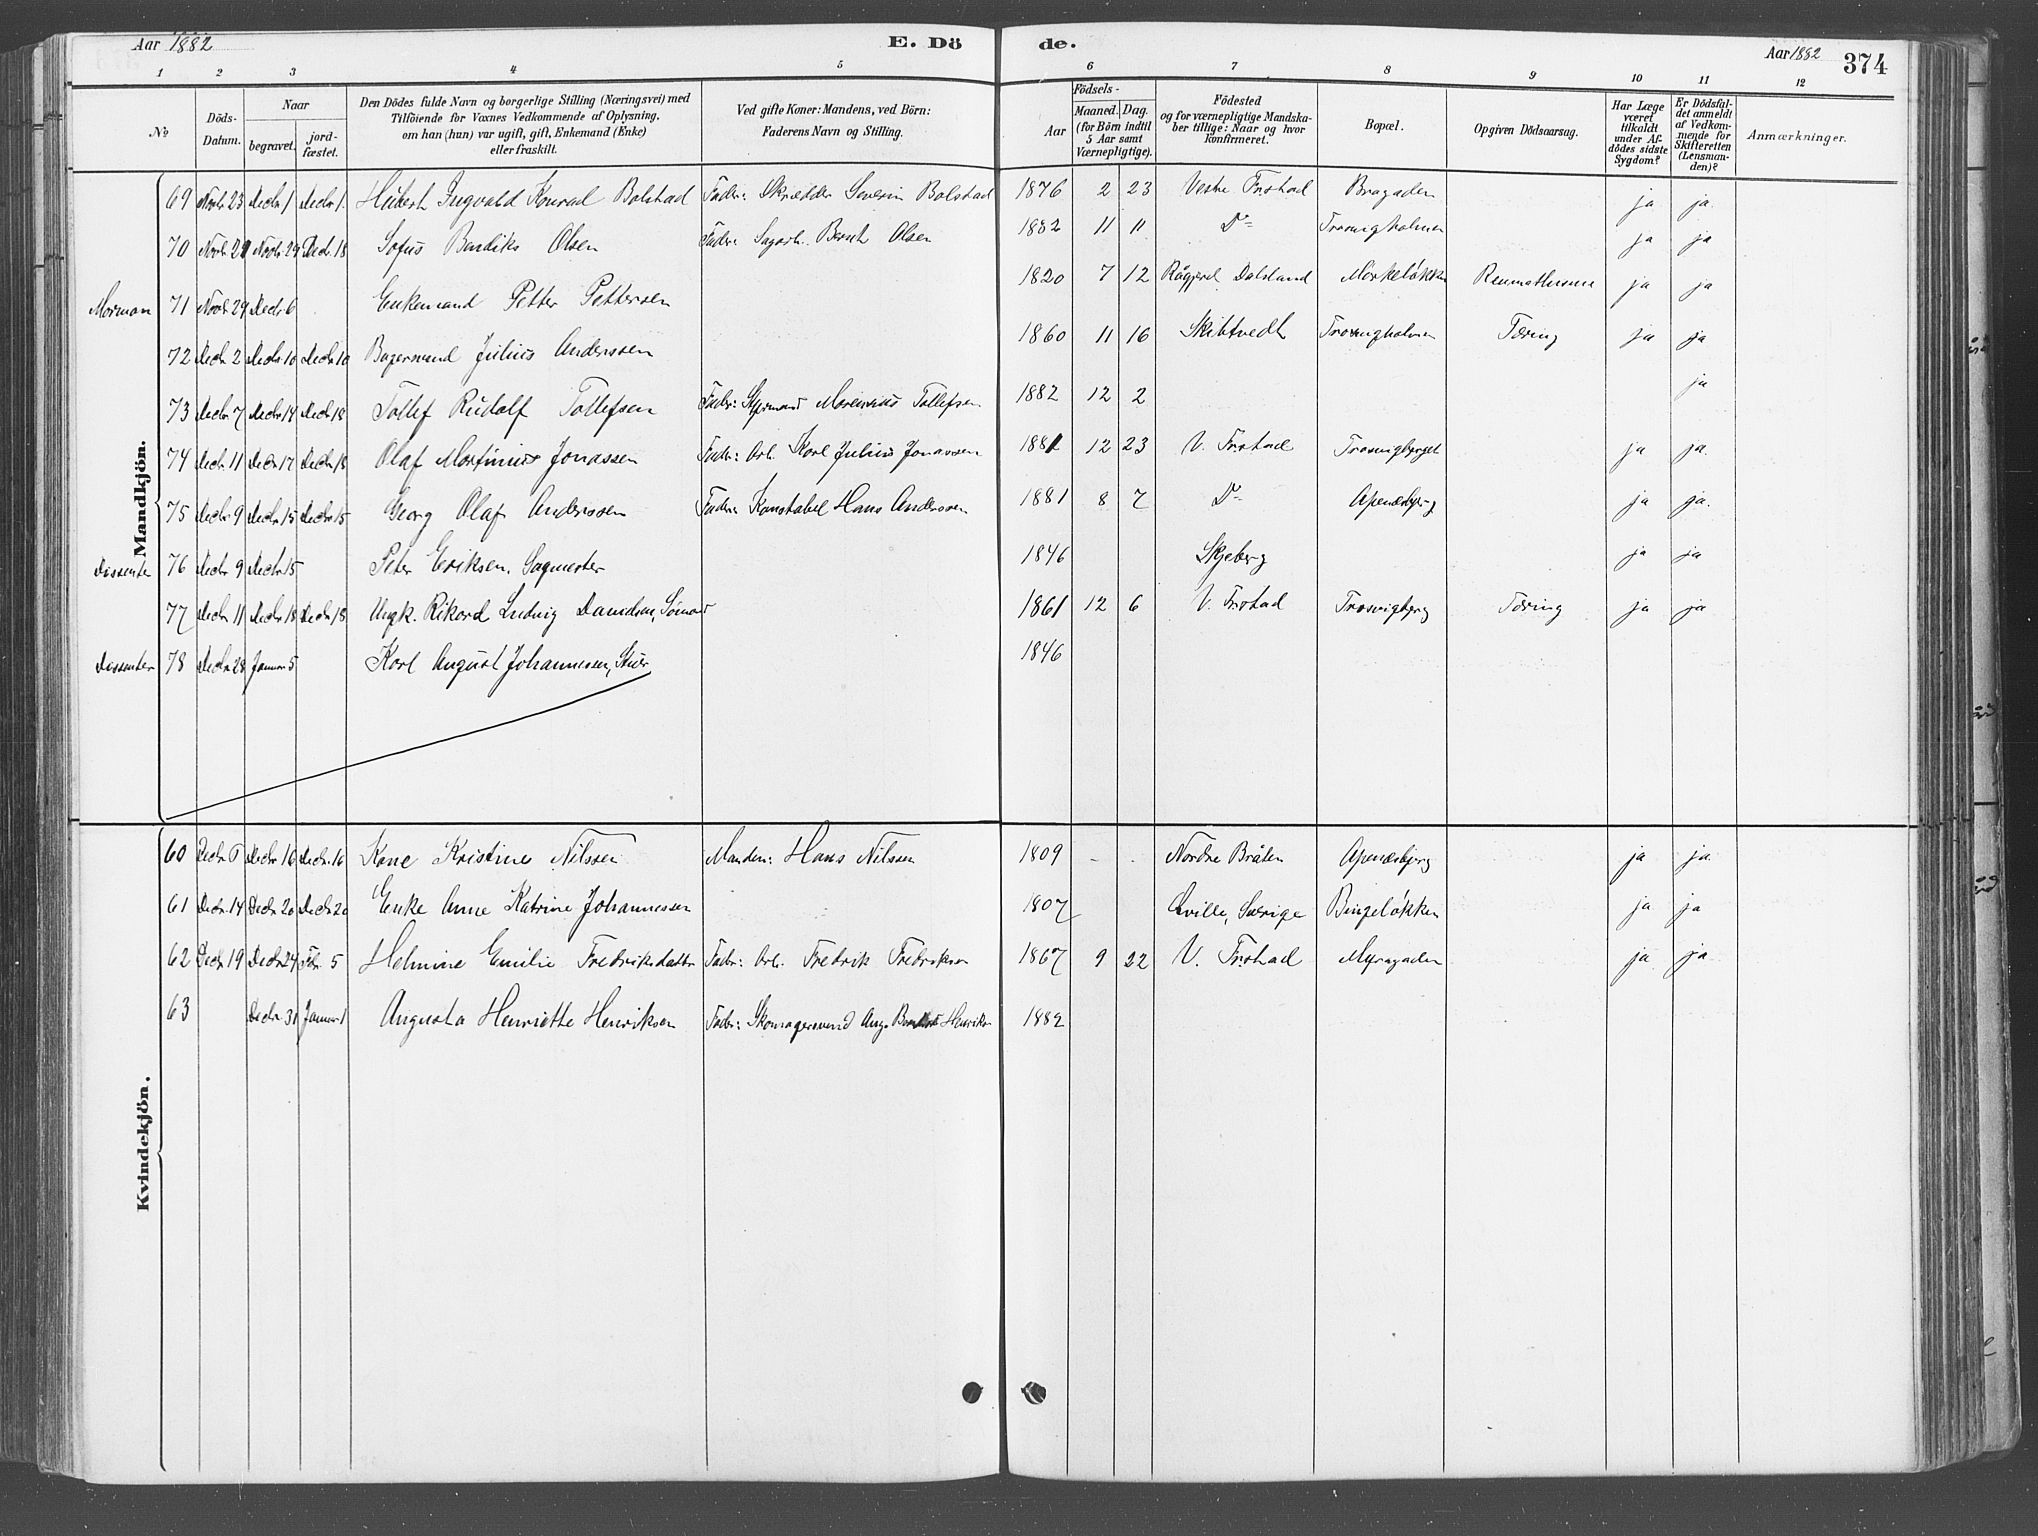 Aar 1882 E. Dö de. Aar 1882 374
1 2 3 4 5 6 7 8 9 10 11 12
No
Döds-Datum.
Naar
begravet.
jord-fæstet.
Den Dödes fulde Navn og borgerlige Stilling (Næringsvei) med
Tilföiende for Voxnes Vedkommende af Oplysning,
om han (hun) var ugift, gift, Enkemand (Enke)
eller fraskilt.
Ved gifte Koner: Mandens, ved Börn:
Faderens Navn og Stilling.
Födsels-
Aar
Maaned. Dag.
(for Börn indtil
5 Aar samt
Værnepligtige).
Födested
og for værnepligtige Mandska-
ber tillige: Naar og hvor
konfirmeret.
Bopæl.
Opgiven Dödsaarsag.
Har Læge
været
tilkaldt
under Af-
dödes sidste
Sygdom?
Er Dödsfal-
det anmeldt
af Vedkom-
mende for
Skifteretten
(Lensman-
den)?
Anmærkninger.
Mandkjön.
69 Novbr 23 Decbr 1 Decbr 1. Hubert Ingvald Konrad Bolstad Fader: Skrædder Severin Bolstad 1876 2 23 Vestre Frstad Bragaden ja ja.
70 Novbr 21 Novbr 29 Decbr 18 Sofus Bendiks Olsen Fader: Sagarb. Bernt Olsen 1882 11 11 Do Trosvigholmen ja ja
Mormon 71 Novbr 29 Decbr 6 Enkemand Petter Pettersen 1820 7 12 Råggerd Dalsland Mörkeløkken Reumathisme ja ja
72 Decbr 2 Decbr 10 Decbr 10 Bagersvend Julius Anderssen 1860 11 16 Skibtvedt Trosvigholmen Tæring ja ja
73 Decbr 7 Decbr 18 Decbr 18 Tollef Rudolf Tollefsen Fader: Styrmand Morensius Tollefsen 1882 12 2 ja
74 Decbr 11 Decbr 17 Decbr 18 Olaf Martinius Jonassen Fader: Arb. Karl Julius Jonassen 1881 12 23 V. Frstad Trosvigberget ja ja.
75 Decbr 9 Decbr 15 Decbr 15 Georg Olaf Anderssen Fader: Konstabel Hans Anderssen 1881 8 7 Do Apenæsbjerg ja ja.
Dissenter 76 Decbr 9 Decbr 15 Peter Eriksen, Sagmester 1846 Skjeberg ja ja
77 Decbr 11 Decbr 18 Decbr 18 Ungk. Rikard Ludvig Davidsen, Sömand 1861 12 6 V. Frstad Trosvigberg Tæring ja ja
Dissenter 78 Decbr 28 Januar 5 Karl August Johannessen, Stuer 1846
Kvindekjön.
60 Decbr 6 Decbr 16 Decbr 16 Kone Kristine Nilssen Manden: Hans Nilssen 1809 - - Nordre Bråten Apenæsbjerg ja ja
61 Decbr 14 Decbr 20 Decbr 20 Enke Anne Katrine Johannessen 1807 Qville, Sverige Bingeløkken ja ja
62 Decbr 19 Decbr 24 Febr. 5 Helmine Emilie Fredriksdatter Fader: Arb. Fredrik Fredriksen 1867 9 22 V. Frstad Myragaden ja ja
63 Decbr 31 Januar 1 Augusta Henriette Henriksen Fader: Skomagersvend Aug. Henriksen 1882